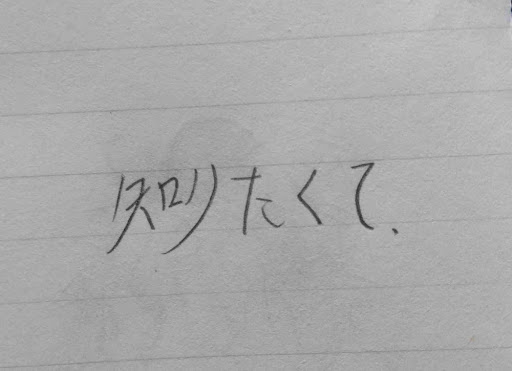 知りたくて、